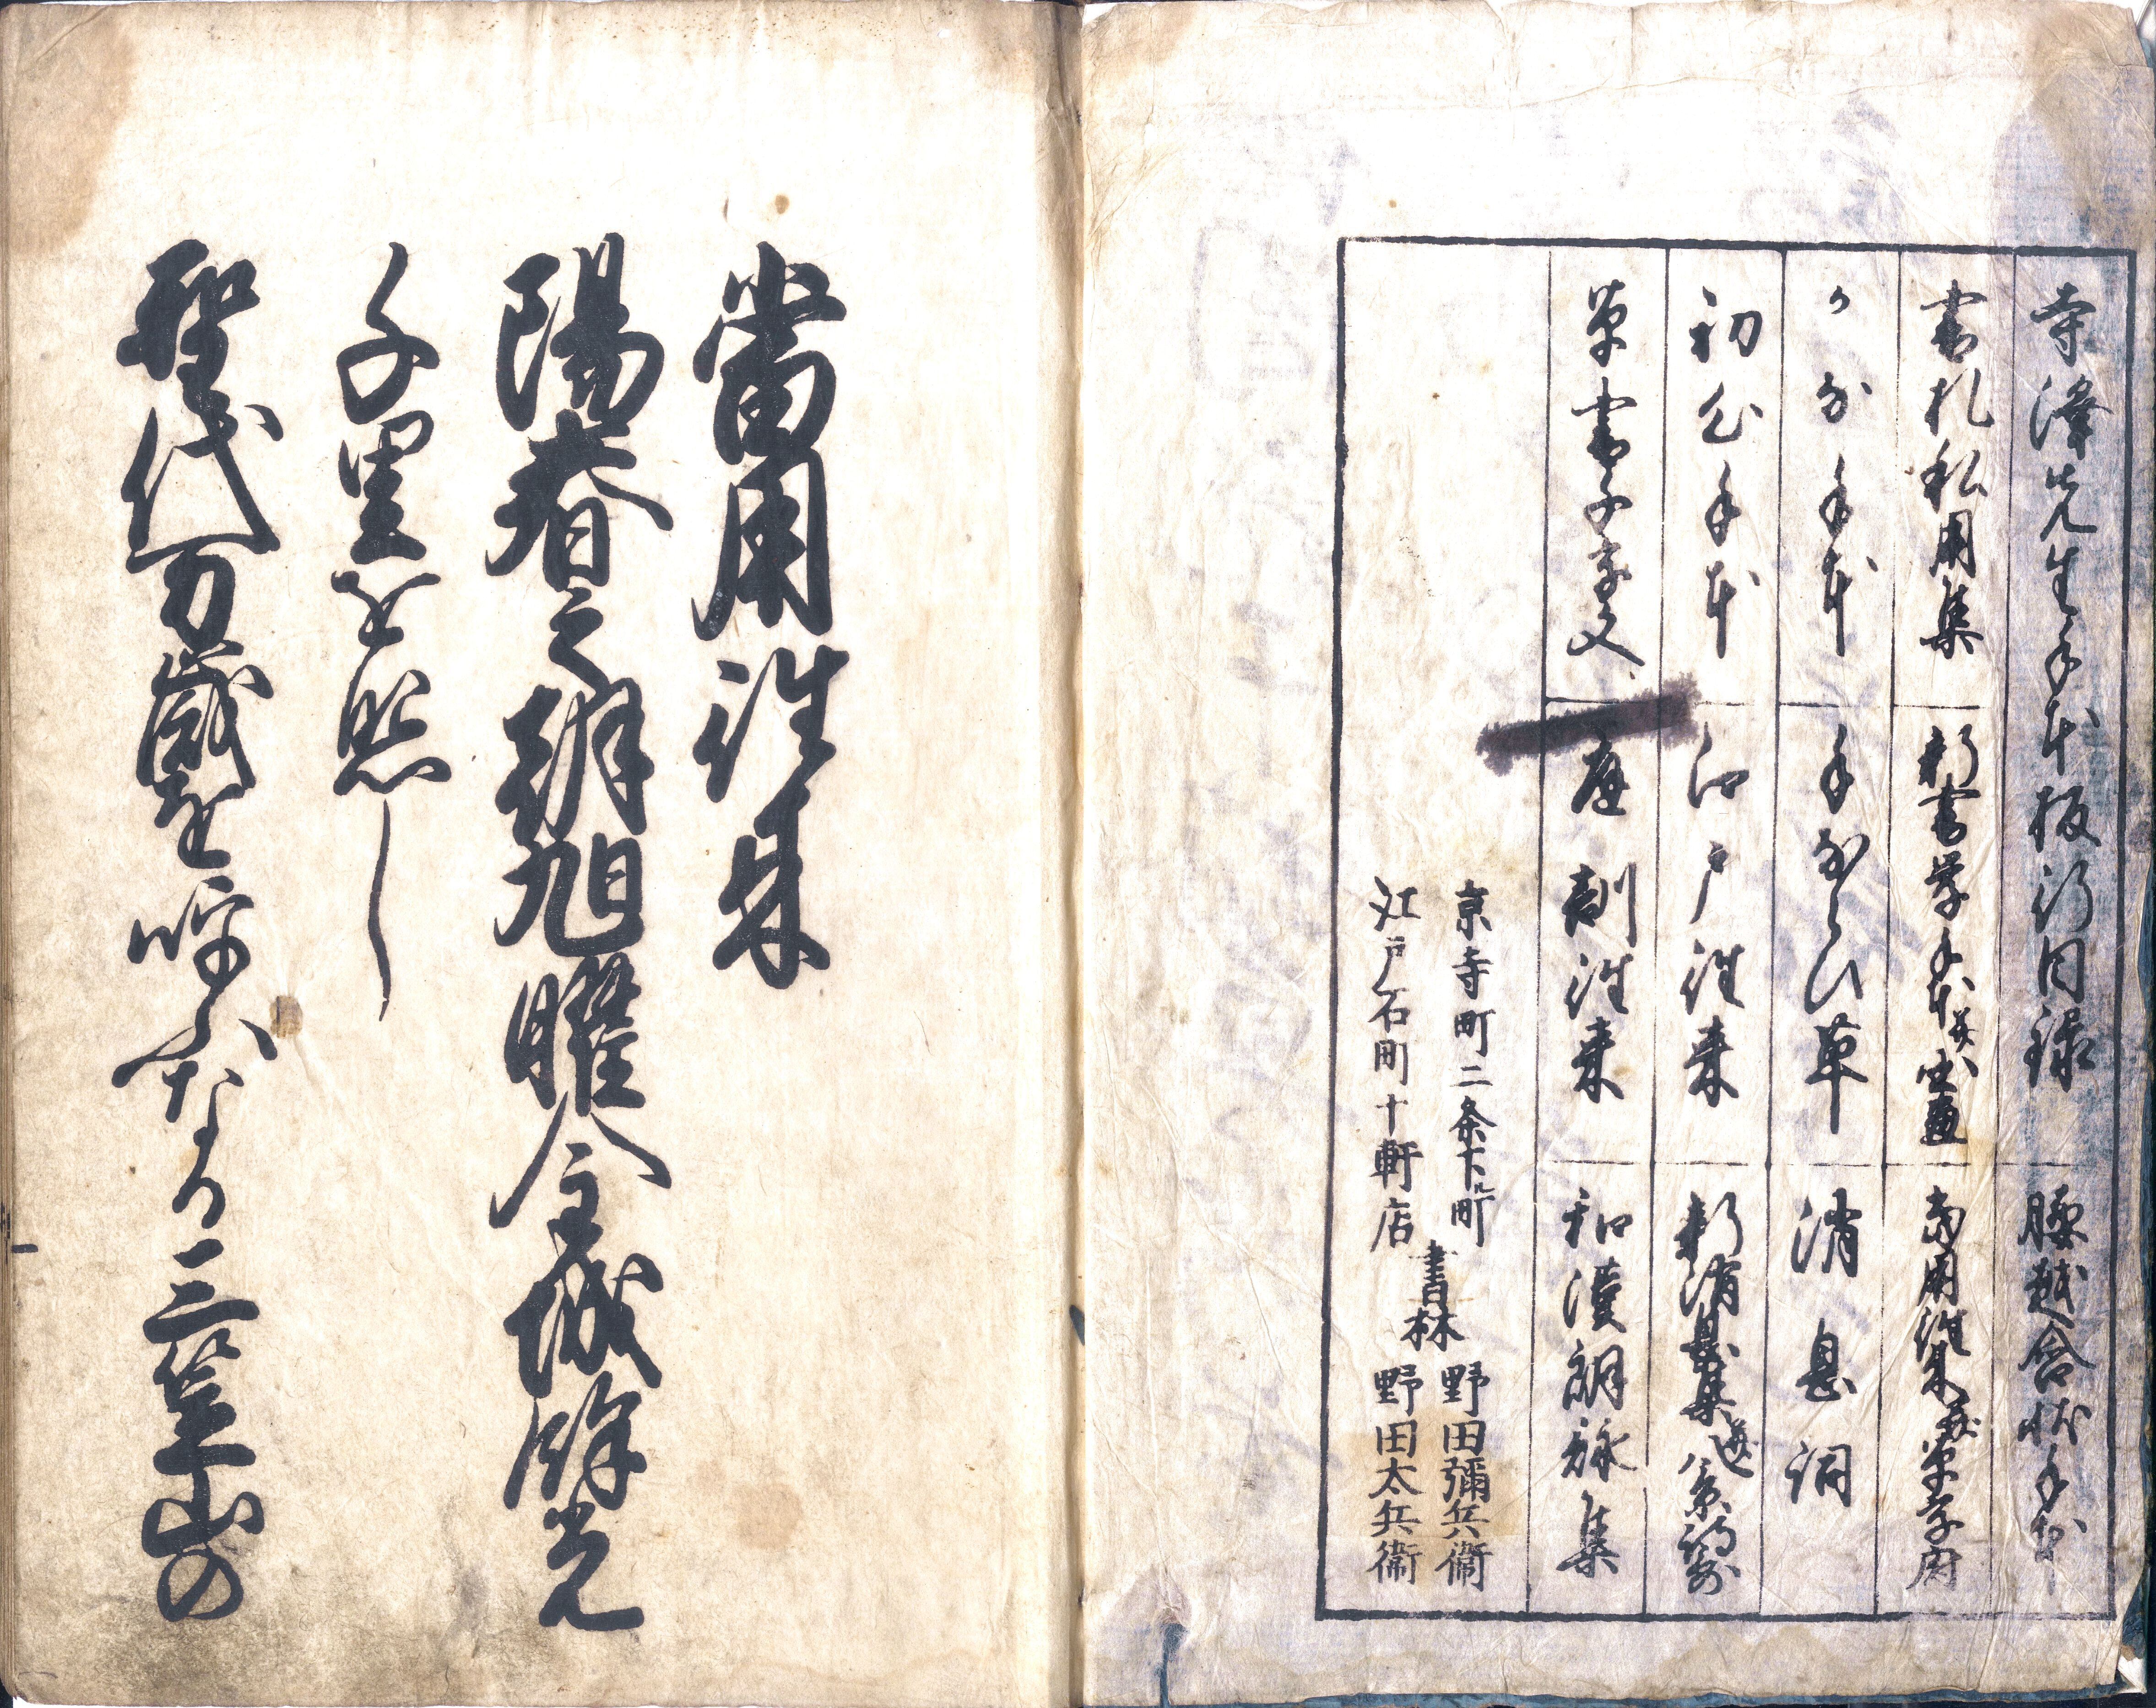 寺澤先生手本板行目録
腰越含状手本
書札私用集
新書学手本
當用往来
かな手本
手ならひ草
消息詞
初心手本
江戸往来
新消息集
草書千字文
庭訓往来
和漢朗詠集
京寺町二条下ル町
江戸石町十軒店
書林
野田彌兵衛
野田太兵衛
當用往来
陽春之朝旭曜金城餘光
千里を照し
聖代万歳を呼ふなる三笠山の